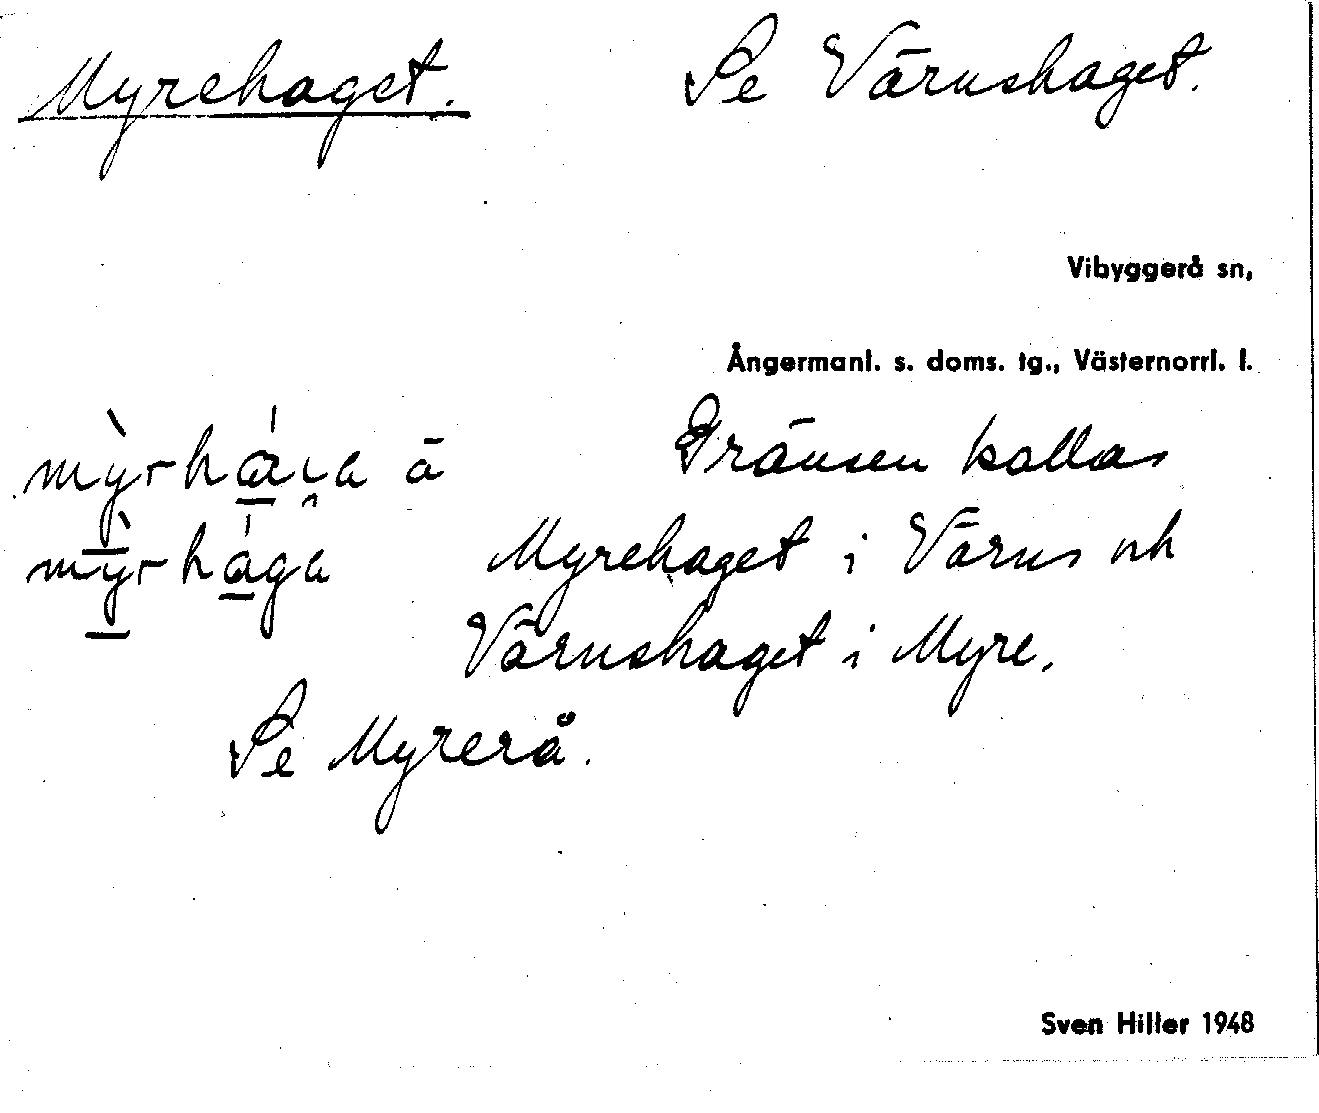 Myrehaget. Se Värnshaget.
Vibyggerå sn,
Ångermanl. s. doms. tg., Västernorrl. l.
Gränsen kallas
Myrehaget i Värns och
Värnshaget i Myre.
Se Myrerå.
Sven Hiller 1948